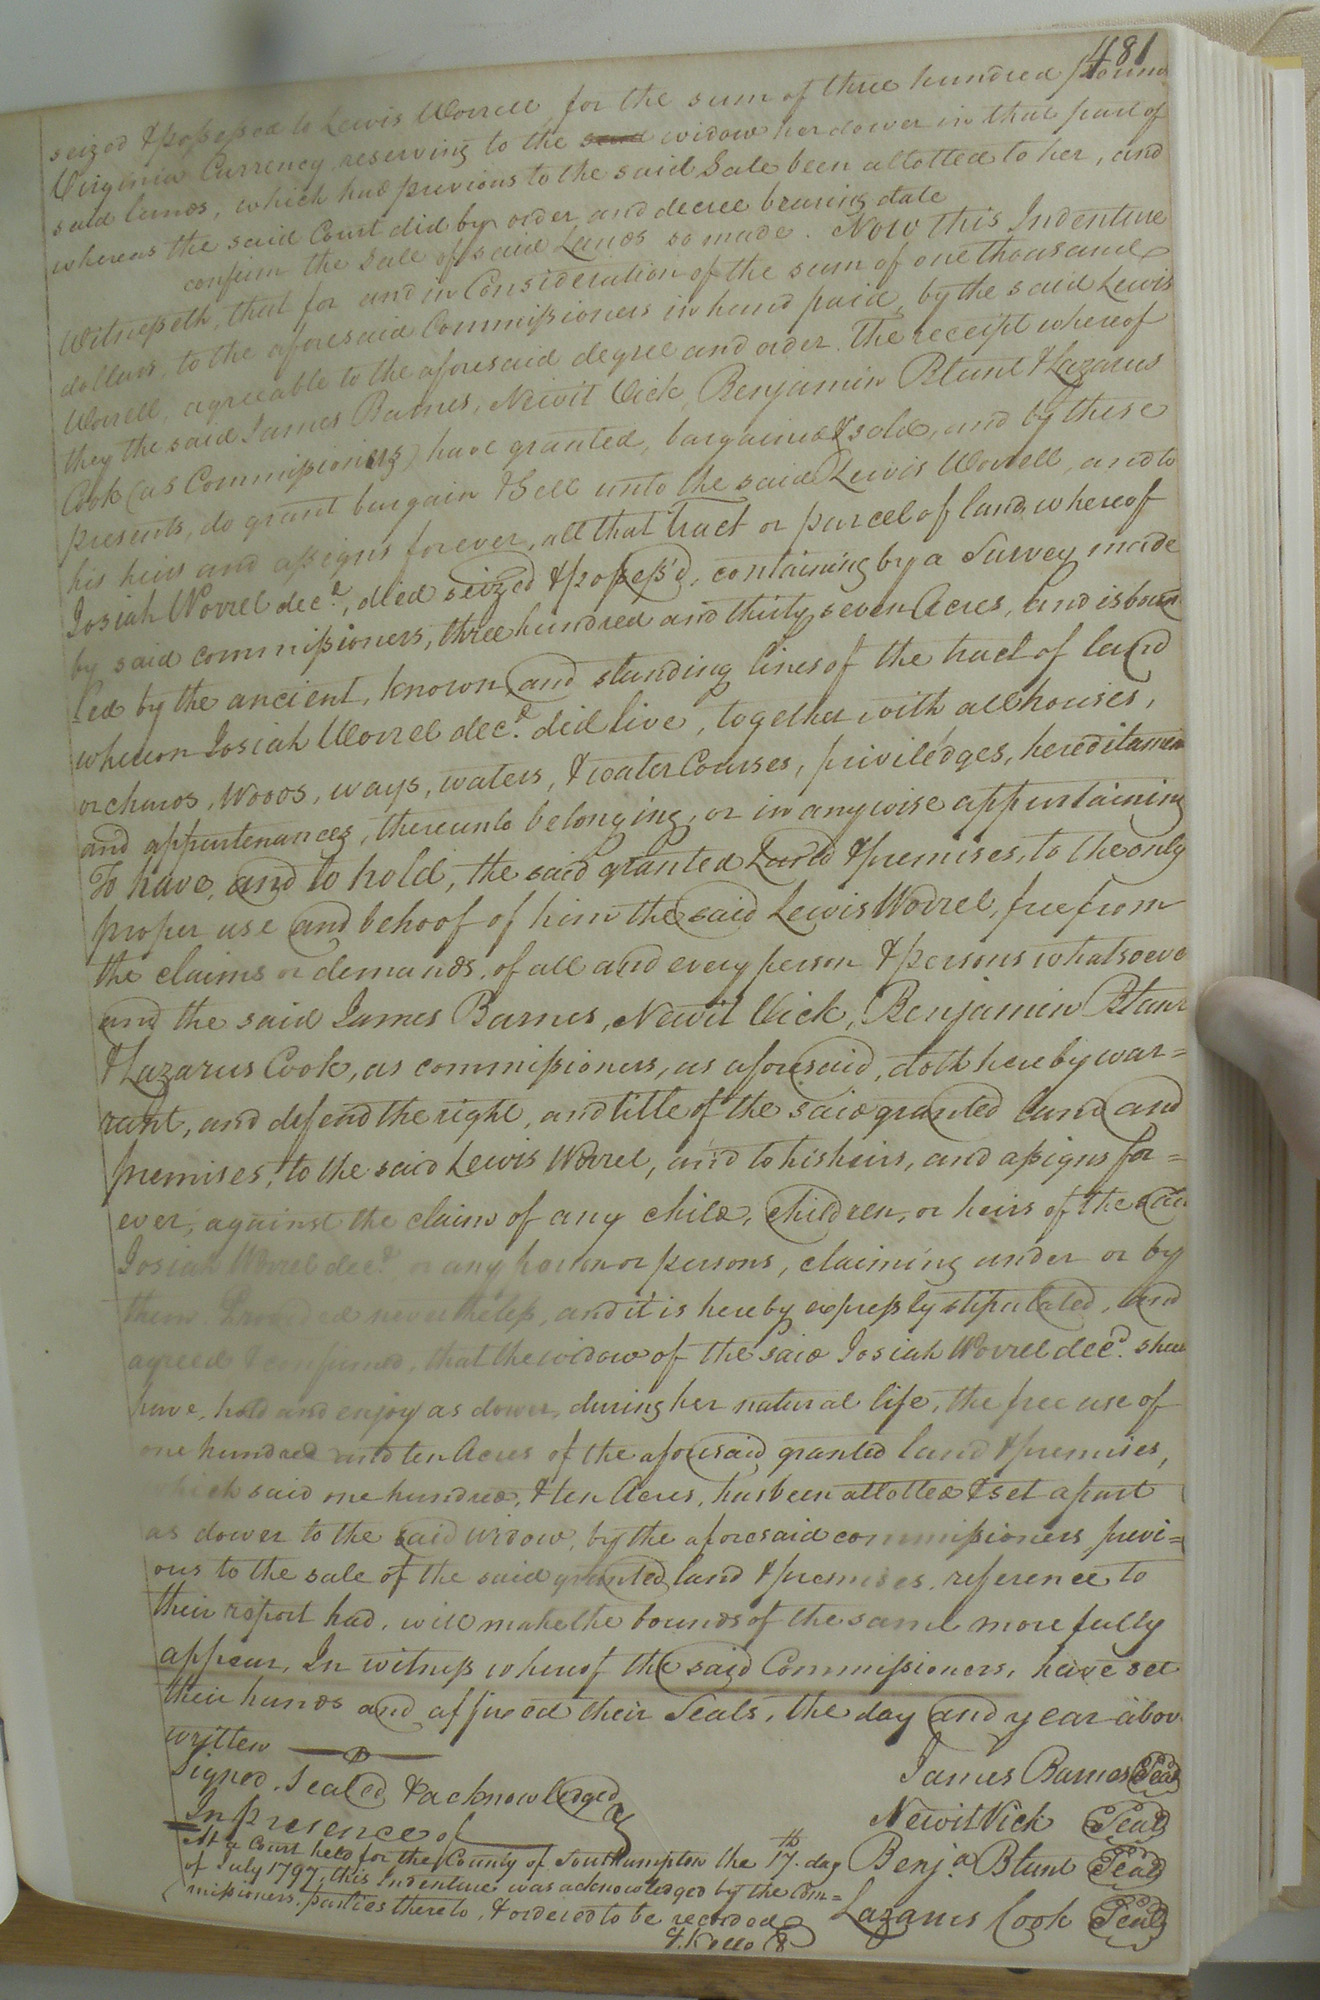 481
seized & possessed to Lewis Worrell, for the sum of three hundred pounds
Virginia Currency reserving to the said widow her dower in that part of
said lands, which had previous to the said Sale been allotted to her, and
whereas the said Court did by order and decree bearing date
confirm the Sale of said Lands so made. Now this Indenture
Witnesseth, that for and in Consideration of the sum of one thousand
dollars, to the aforesaid Commissioners in hand paid, by the said Lewis
Worrell, agreeable to the aforesaid degree and order. The receipt whereof
they the said James Barnes, Newit Vick, Benjamin Blunt & Lazarus
Cook (as Commissioners) have granted, bargained & sold, and by these
presents, do grant bargain & Sell unto the said Lewis Worrell, and to
his heirs and assigns forever, all that Tract or parcel of land whereof
Josiah Worrel decd., died seized & possess'd, containing by a Survey made
by said commissioners, three hundred and thirty seven Acres, and is boun
ded by the ancient, known, and standing lines of the tract of land
whereon Josiah Worrel decd. did live, together with all houses,
orchards, Woods, ways, waters, & water Courses, priviledges, hereditamen
and appurtenances, thereunto belonging, or in anywise appurtaining
To have, and to hold, the said granted Land & premises, to the only
proper use and behoof of him the said Lewis Worrel, free from
the claims or demands, of all and every person & persons whatsoeve
and the said James Barnes, Newit Vick, Benjamin Blunt
& Lazarus Cook, as commissioners, as aforesaid, doth hereby war=
rant, and defend the right, and title of the said granted land and
premises, to the said Lewis Worrel, and to his heirs, and assigns for=
ever, against the claim of any child, children, or heirs of the said
Josiah Worrel decd. or any person or persons, claiming under or by
them Provided nevertheless, and it is hereby expressly stipulated, and
agreed & confirmed, that the widow of the said Josiah Worrel decd. shall
have, hold and enjoy as dower, during her natural life, the free use of
one hundred and ten Acres of the aforesaid granted land & premises,
which said one hundred, & ten Acres, has been allotted & set apart
as dower to the said widow, by the aforesaid commissioners previ=
ous to the sale of the said granted land & premises, reference to
their report had, will make the bounds of the same more fully
appear, In witness whereof the said Commissioners, have set
their hands and affixed their Seals, the day and year abov
written
Signed, Sealed & acknowledged
In presence of
James Barnes Seal
Newit Vick Seal
Benja Blunt Seal
Lazarus Cook Seal
At a Court held for the County of Southampton the 17th. day
of July 1797, this Indenture was acknowledged by the Com=
missioners, parties thereto, & ordered to be recorded